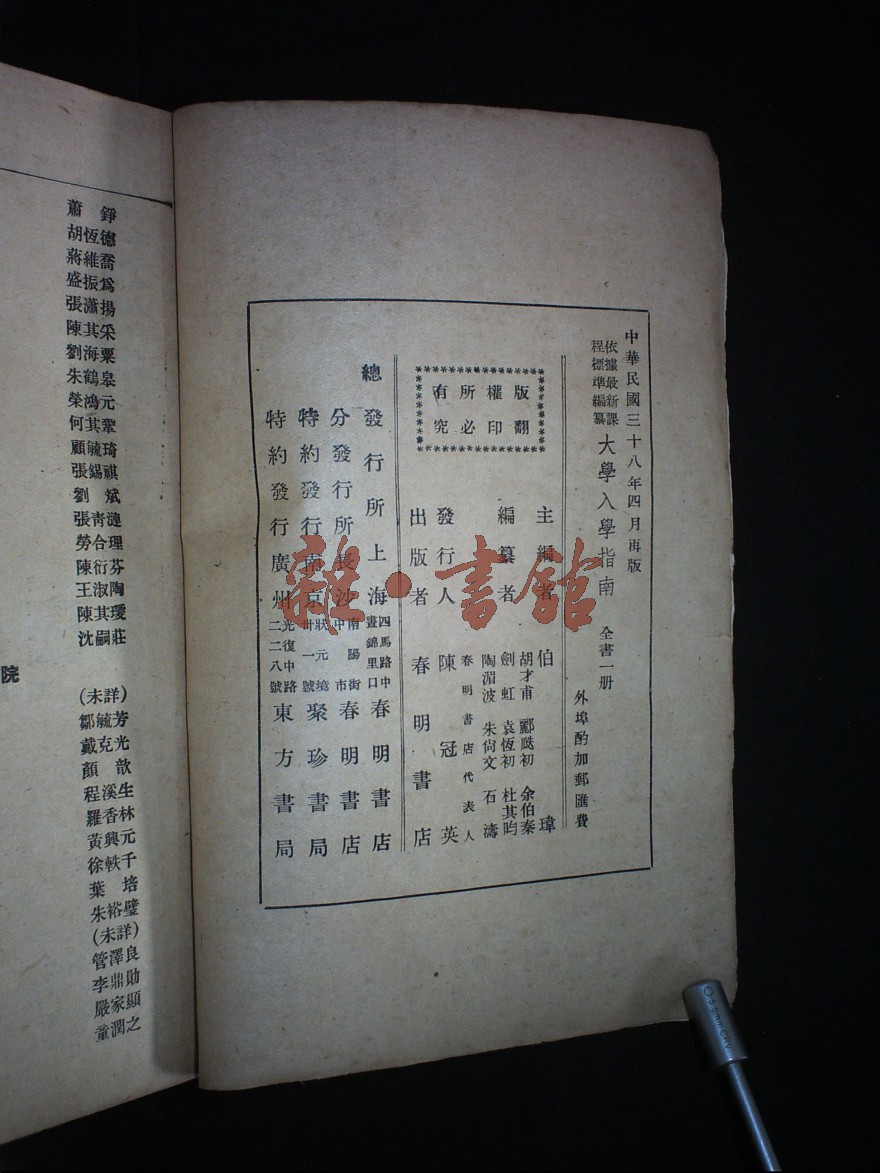 中華民國三十八年四月再版
依據最新課
程標準編纂
大學入學指南
全書一册
外埠酌加郵匯費
版權所有
翻印必究
主編者 伯瑋
編纂者
胡才甫 酈飋初 余伯秦
劍虹 袁恆初 杜其昀
陶湄波 朱尙文 石濤
發行人 陳冠英
春明書店代表人
出版者 春明書店
總發行所上海
四馬路中
畫錦里口
春明書店
分發行所長沙
南陽街
中市
春明書店
特約發行南京
狀元境
卅一號
聚珍書局
特約發行廣州
光復中路
二二八號
東方書局
蕭錚
胡恆德
蔣維喬
盛振為
張瀟揚
陳其采
劉海粟
朱鶴皋
榮鴻元
何其鞏
顧毓琦
張錫祺
劉斌
張靑漣
勞合理
陳衍芬
王淑陶
陳其瑗
沈嗣莊
院
(未詳)
鄒毓芳
戴克光
顏歆
程溪生
羅香林
黃興元
徐軼千
葉培
朱裕璧
(未詳)
管澤良
李鼎勛
嚴家顯
童潤之
雜·書館